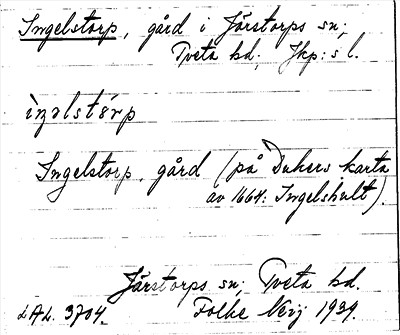 Ingelstorp, gård i Järstorps sn;
Tveta hd; Jkp:s l.
ìŋəlstórp
Ingelstorp, gård (på Dukers karta
av 1664: Ingelshult).
Järstorps sn; Tveta hd.
LAL. 3704. Folke Nevj 1939.